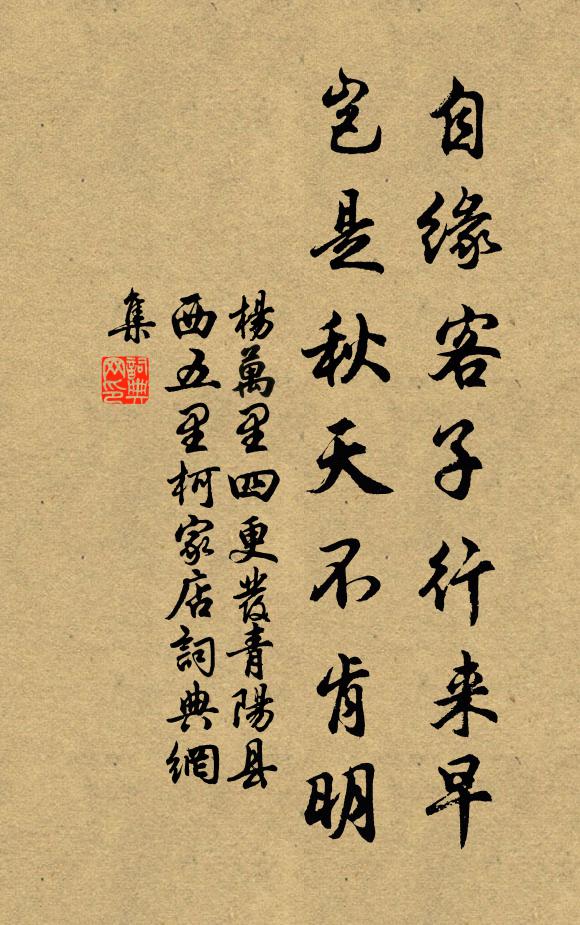 自缘客子行来早
岂是秋天不肯明
楊萬里四更發青陽县
西五里柯家店詞典網
集
詞典
网印